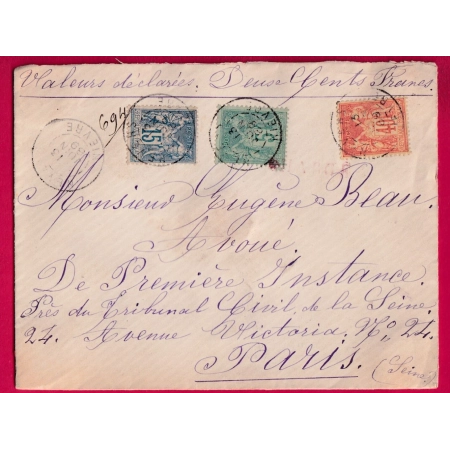 Valeurs déclarées, Deux Cents Francs
694
15
40
Monsieur Eugène Beau.
Avoué.
De Première Instance.
Près du Tribunal Civil de la Seine.
24. Avenue Victoria. No 24.
Paris.
(Seine)